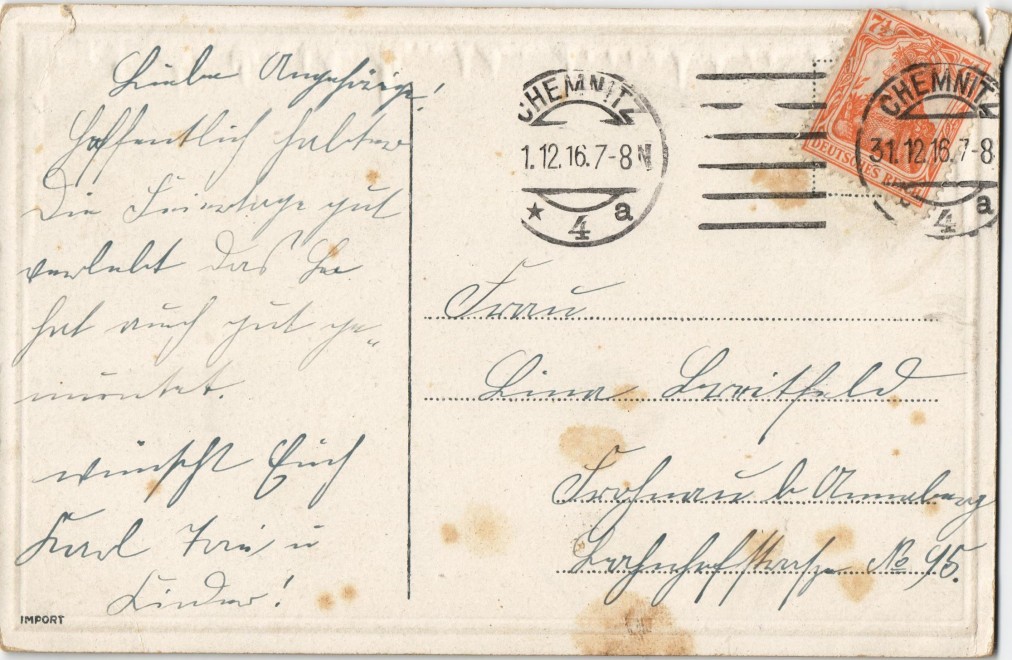 Liebe Angehörige!
Hoffentlich habt Ihr
Die Feiertage gut
verlebt das
hat auch gut ge-
mundet.
wünscht Euch
Karl Frau u
Kinder!
IMPORT
CHEMNITZ
1.12.16.7-8 N
* 4 a
7½
DEUTSCHES REICH
CHEMNITZ
31.12.16.7-8
4 a
Frau
Lina Breitfeld
Frohnau b Annaberg
Bahnhofstrasse No 95.